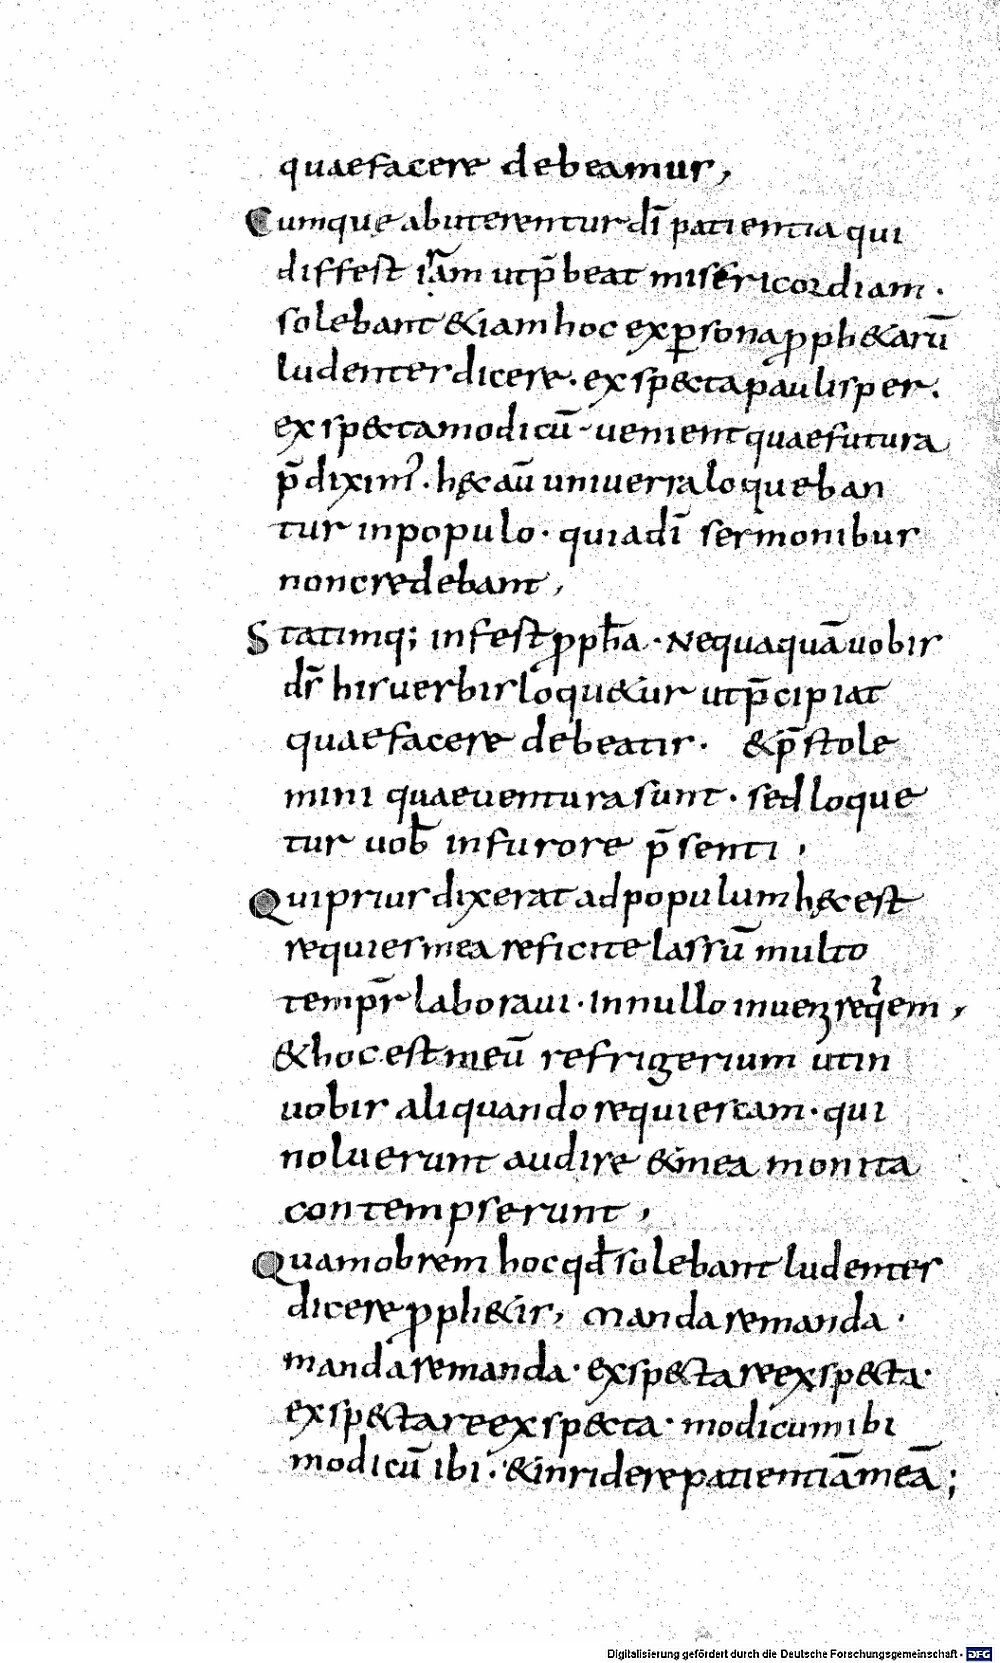 quae facere debeamus,
Cumque abuterentur dī patientia qui
differt irām ut p̄beat misericordiam.
solebant & iam hoc ex ꝑsona ꝓph&arū
ludenter dicere. exspecta paulisper.
exspecta modicū. uenient quae futura
p̄diximꝰ. hęc aū uniuersa loqueban
tur in populo. quia dī sermonibus
non credebant,
Statimq; infert ꝓph̄a. Nequaquā uobis
dr̄ his uerbis loqu&ur ut p̄cipiat
quae facere debeatis. & p̄stole
mini quae uentura sunt. sed loque
tur uob̄ in furore p̄senti,
Qui prius dixerat ad populum hęc est
requies mea reficite lassū multo
temp̄r laboraui. In nullo inueni req̇em,
& hoc est meū refrigerium ut in
uobis aliquando requiescam. qui
noluerunt audire & mea monita
contempserunt,
Quamobrem hoc qd̄ solebant ludenter
dicere ꝓph&is, Manda remanda.
manda remanda. exspecta reexspecta.
exspecta reexspecta. modicum ibi
modicū ibi. & inridere patientiā meā;
Digitalisierung gefördert durch die Deutsche Forschungsgemeinschaft - DFG